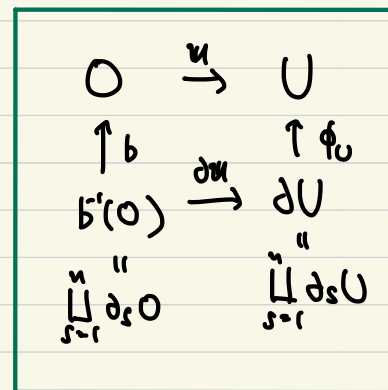 O →ˣ U
↑ b ↑ ϕ_U
b⁻¹(O) →^∂x ∂U
‖ ‖
∐_{s=1}^n ∂_s O ∐_{s=1}^n ∂_s U